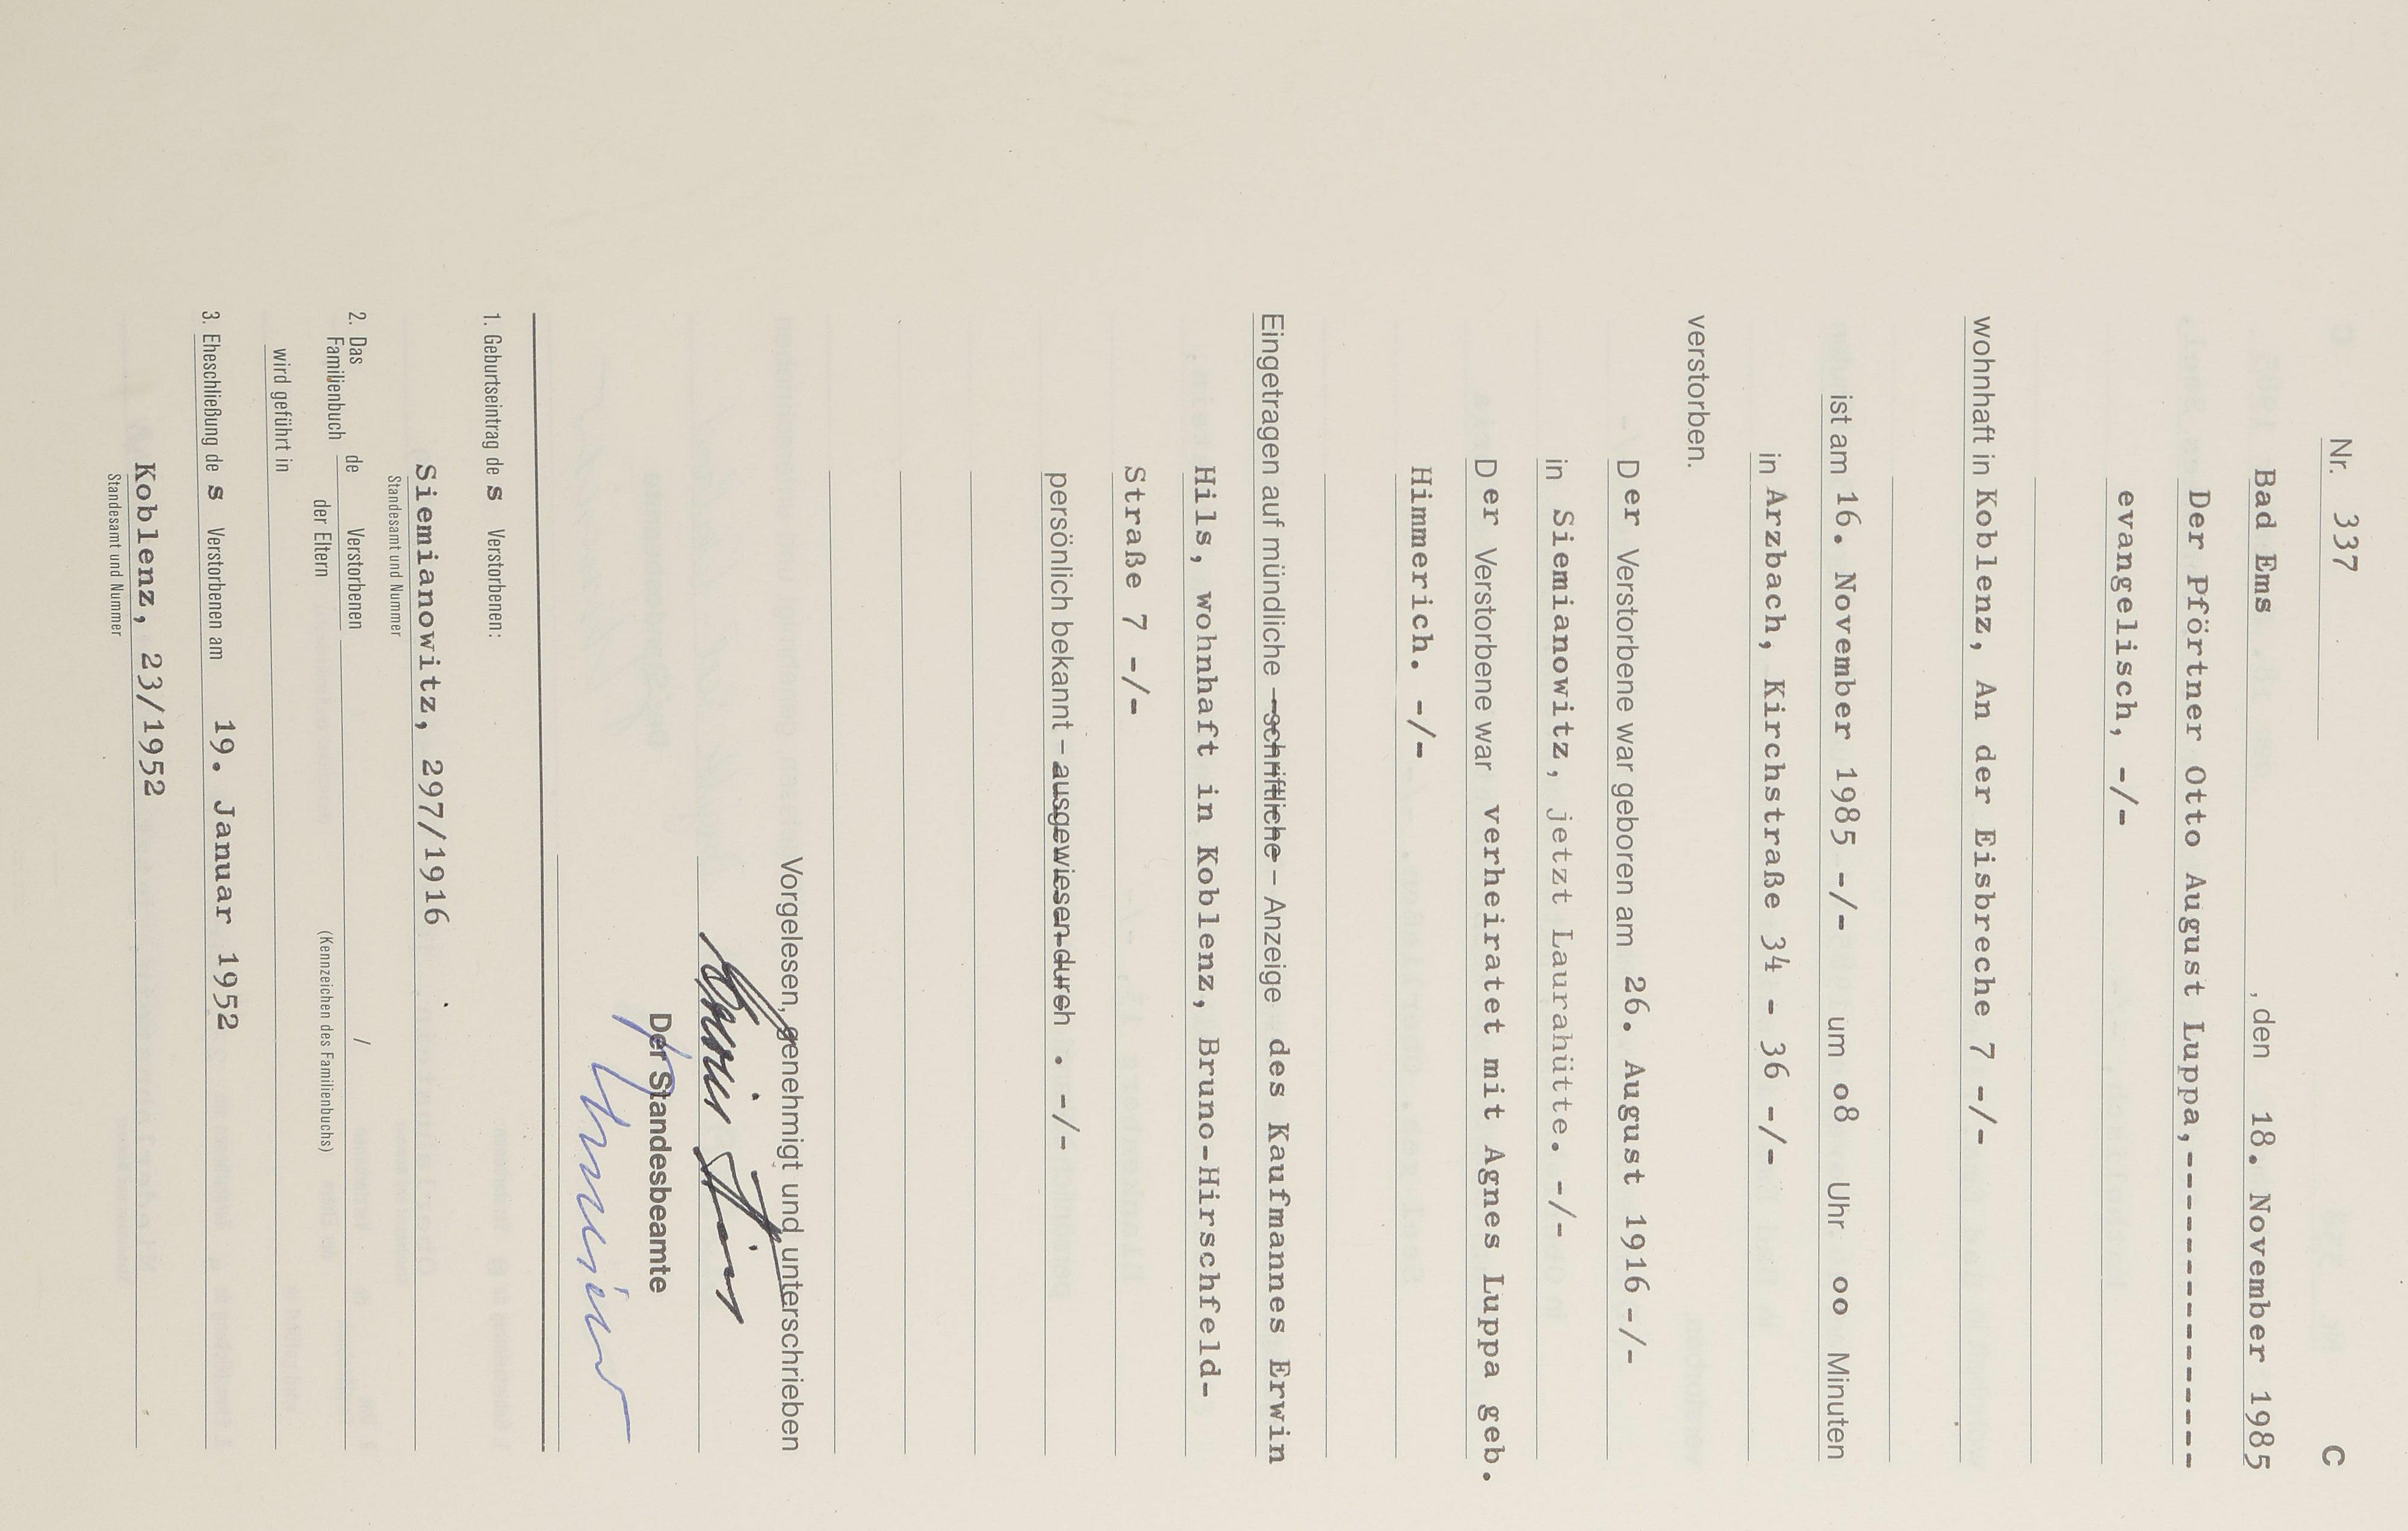 Nr. 337 C
Bad Ems , den 18. November 1985
Der Pförtner Otto August Luppa,----------------
evangelisch, -/-
wohnhaft in Koblenz, An der Eisbreche 7 -/-
ist am 16. November 1985 -/- um o8 Uhr oo Minuten
in Arzbach, Kirchstraße 34 - 36 -/-
verstorben.
Der Verstorbene war geboren am 26. August 1916 -/-
in Siemianowitz, jetzt Laurahütte. -/-
Der Verstorbene war verheiratet mit Agnes Luppa geb.
Himmerich. -/-
Eingetragen auf mündliche – schriftliche – Anzeige des Kaufmannes Erwin
Hils, wohnhaft in Koblenz, Bruno-Hirschfeld-
Straße 7 -/-
persönlich bekannt – ausgewiesen durch . -/-
Vorgelesen, genehmigt und unterschrieben
Erwin Hils
Der Standesbeamte
1. Geburtseintrag des Verstorbenen:
Siemianowitz, 297/1916
Standesamt und Nummer
2. Das Familienbuch de Verstorbenen / der Eltern
(Kennzeichen des Familienbuchs)
wird geführt in
3. Eheschließung des Verstorbenen am 19. Januar 1952
Koblenz, 23/1952
Standesamt und Nummer